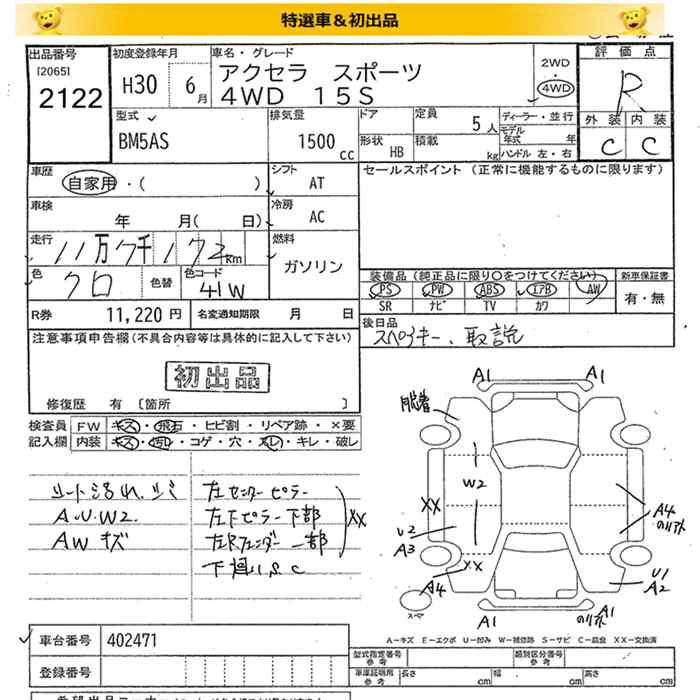 特選車＆初出品
出品番号
[2065]
2122
初度登録年月
H30 6月
車名・グレード
アクセラ スポーツ
4WD 15S
2WD
4WD
評価点
R
外装 内装
C C
型式
BM5AS
排気量
1500 cc
ドア
定員
5人
形状
HB
積載
kg
ディーラー・並行
モデル年式 年
ハンドル 左・右
車歴
自家用・( )
シフト
AT
セールスポイント (正常に機能するものに限ります)
車検
年 月( 日)
冷房
AC
走行
11万7千172km
燃料
ガソリン
色
クロ
色替
色コード
41W
装備品 (純正品に限り○をつけてください)
PS PW ABS エアB AW
SR ナビ TV カワ
新車保証書
有・無
R券
11,220円
名変通知期限 月 日
後日品
スペアキー、取説
注意事項申告欄(不具合内容等は具体的に記入して下さい)
初出品
修復歴 有 [箇所 ]
検査員記入欄
FW キズ・飛石・ヒビ割・リペア跡・×要
内装 キズ・汚レ・コゲ・穴・スレ・キレ・破レ
シート汚れ、シミ
A.U.W2
AWキズ
左センターピラー
左下ピラー下部
左Rフェンダー一部
XX
下廻りS.C
A1
A1
脱着
W2
XX
U2
A3
A4
XX
A4
のリアト
U1
A2
A1
A1
スペア
A－キズ E－エクボ U－凹み W－補修跡 S－サビ C－腐食 XX－交換済
車台番号
402471
登録番号
型式指定番号
参考
類別区分番号
参考
車庫証明用
参考
長さ cm
幅 cm
高さ cm